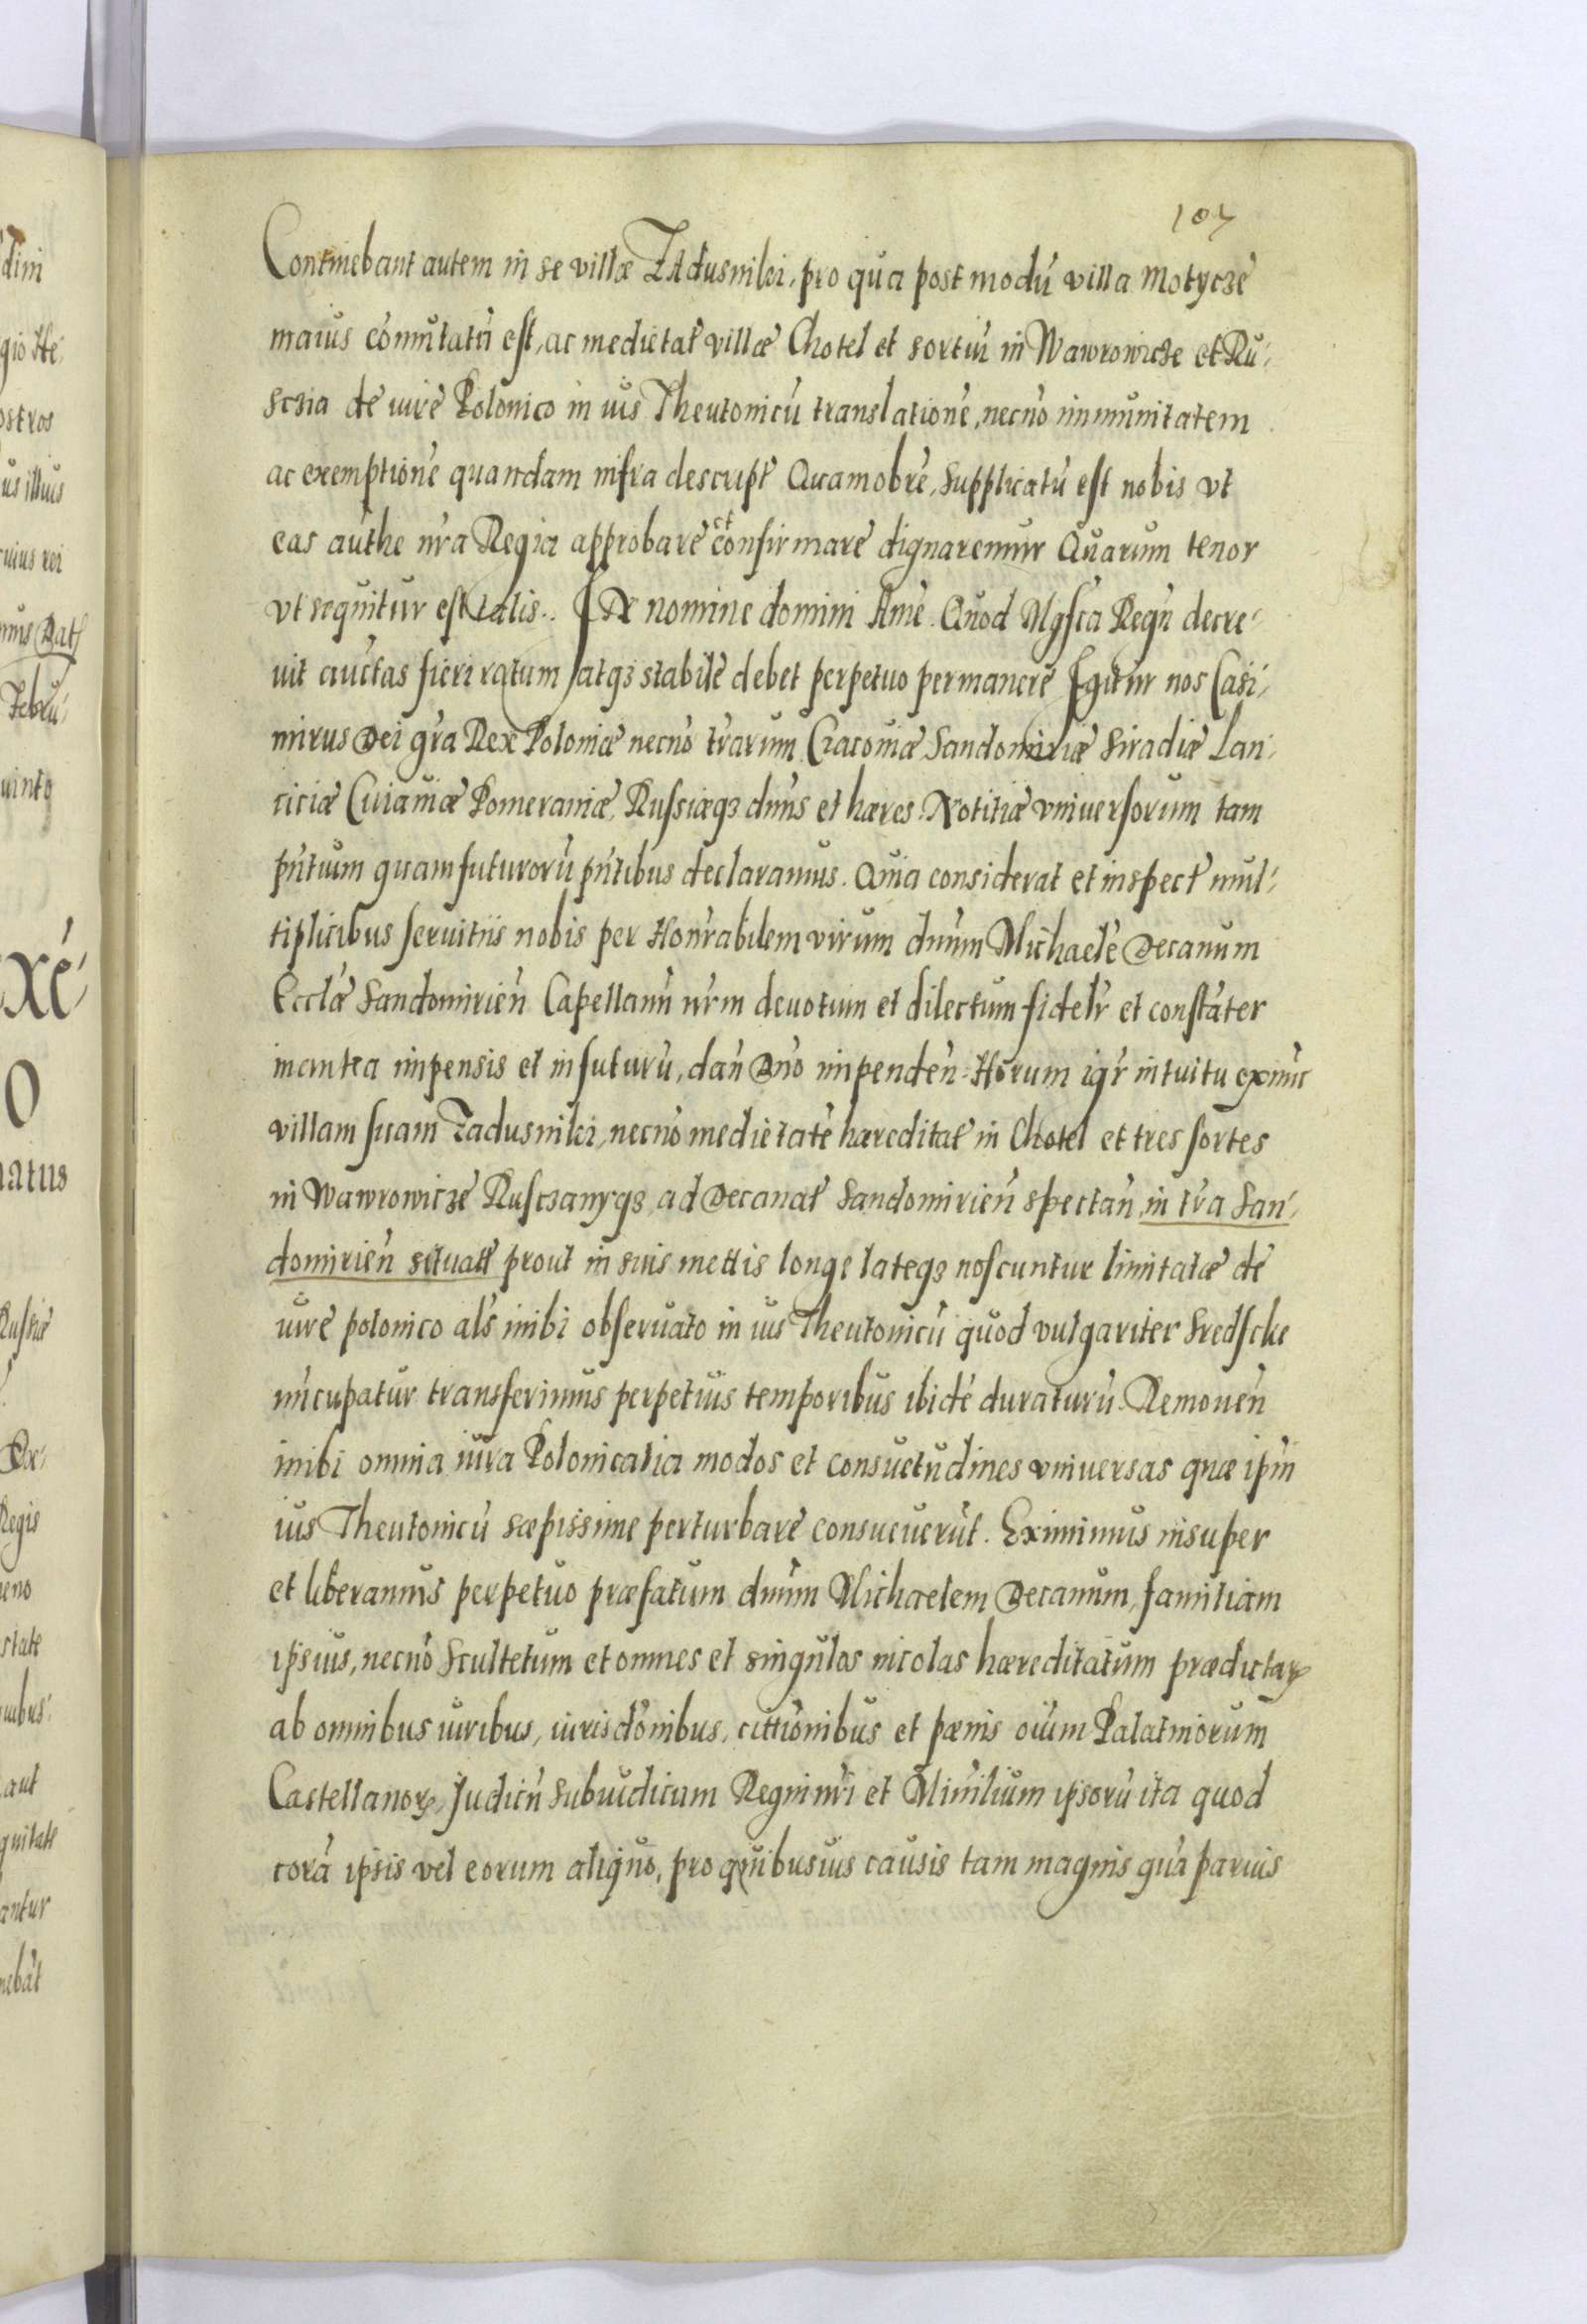 107
Continebant autem in se villæ ZAdusniki, pro qua post modũ villa Motyczė
maius cõmutatũ est, ac medietat̃ villæ Chotel et sortiũ in Wawrowicze et Ru-
sczia de iure Polonico in ius Theutonicũ translationẽ, necnõ immunitatem
ac exemptionẽ quandam infra descript̃ Quamobrẽ, supplicatũ est nobis vt
eas authe nr̃a Regia approbare et confirmare dignaremur Quarum tenor
vt sequitur est talis. In nomine domini Amẽ. Quod Mgsca Regũ decre-
uit auctas fieri ratum atqꝫ stabile debet perpetuo permanere Igitur nos Casi-
mirus Dei gr̃a Rex Poloniæ necnõ tr̃arum Cracouiæ Sandomiriæ Siradiæ Lan-
ciciæ Cuiauiæ Pomeraniæ, Russiæqꝫ dñns et hæres. Notitiæ vniuersorum tam
pñtium quam futurorũ pñtibus declaramus. Quia considerat et inspect̃ mul-
tiplicibus seruitiis nobis per Honr̃abilem virum dnũm Michaelẽ Decanum
Ecclæ̃ Sandomirieñ Capellanũ nr̃m deuotum et dilectum fidelr̃ et constãter
inantea impensis et in futurũ, dañ Dño impendeñ. Horum igr̃ intuitu exnũc
villam suam Zadusniki, necnõ medietatẽ hæreditat̃ in Chotel et tres sortes
in Wawrowiczė Rusczanyqꝫ ad Decanat̃ Sandomirieñ spectañ, in tr̃a San-
domirieñ situatt̃ prout in suis mettis longe lateqꝫ noscuntur limitatæ de
iure polonico als̃ inibi obseruato in ius Theutonicũ quod vulgariter Sredscke
nũcupatur transferimus perpetuis temporibus ibidẽ duraturũ. Remoueñ
inibi omnia iura Polonicalia modos et consuetudines vniuersas quæ ip̃m
ius Theutonicũ sæpissime perturbare consueuerũt. Eximimus insuper
et liberamus perpetuo præfatum dnũm Michaelem Decanum, familiam
ipsius, necnõ Scultetum et omnes et singulos incolas hæreditatum prædictaꝝ
ab omnibus iuribus, iurisdõnibus, cittionibus et pænis oĩum Palatinorum
Castellanoꝝ, Judicũ Subiudicum Regni nr̃i et Minĩlium ipsorũ ita quod
corã ipsis vel eorum aliquo, pro quibusuis causis tam magnis quã paruis